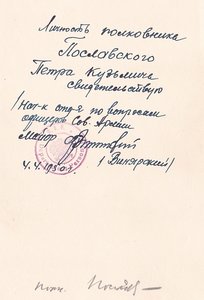 Личность полковника
Пославского
Петра Кузьмича
свидетельствую
по вопросам
офицеров Сов. Армии
майор
/Винярский/
4.4.1950 г.
полк.